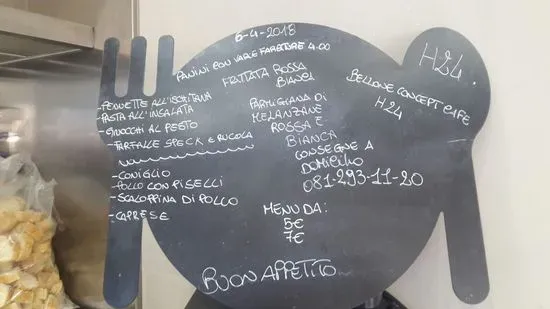 6-4-2018
PANINI CON VARIE FARCITURE 4.00
FRITTATA ROSSA
BIANCA
- PENNETTE ALL'ISCHITANA
- PASTA ALL'INSALATA
- GNOCCHI AL PESTO
- FARFALLE SPECK E RUCOLA
- CONIGLIO
- POLLO CON PISELLI
- SCALOPPINA DI POLLO
- CAPRESE
PARMIGIANA DI
MELANZANE
ROSSA E
BIANCA
CONSEGNE A
DOMICILIO
081-293-11-20
MENU DA:
5€
7€
BUON APPETITO
H24
BELLONE CONCEPT CAFE
H24